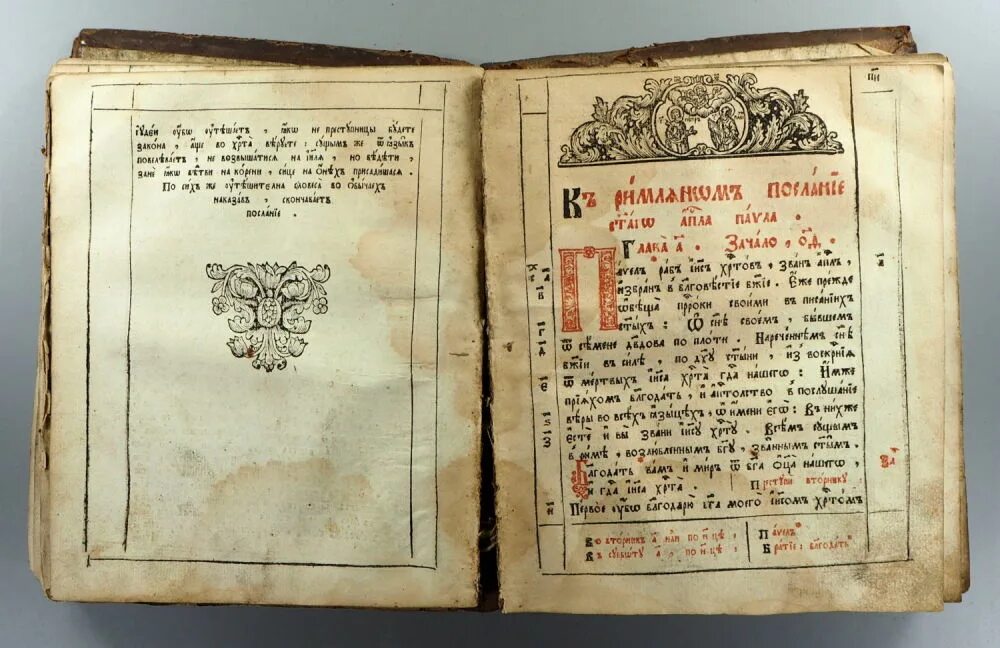 іꙋдеи ᲂу҆́бѡ ᲂу҆тѣша́етъ, ꙗ҆́кѡ не престꙋпницы бꙋ́дете
зако́на, а҆́ще во хрⷭ҇та̀ вѣ́рꙋете: сꙋ́щымъ же ѿ ꙗ҆зы́къ
повелѣва́етъ, не возвыша́тисѧ на і҆и҃лѧ, но вѣ́дѣти,
занѐ ꙗ҆́кѡ вѣ́тви на ко́рени, си́це на ѻ҆нѣ́хъ присади́шасѧ.
По си́хъ же ᲂу҆тѣши́телна словеса̀ во ѻ҆бы́чаехъ
наказа́въ, сконча́ваетъ
посла́нїе.
Къ ри́млѧнѡмъ посла́нїе
ст҃а́гѡ а҆пⷭ҇ла па́ѵла.
Глава̀ а҃. Зача́ло, ѻ҃д.
Па́ѵелъ ра́бъ і҆и҃съ хрⷭ҇то́въ, зва́нъ а҆пⷭ҇лъ,
и҆збра́нъ в̾ бл҃говѣ́стїе бж҃їе. Е҆́же пре́жде
ѡ҆бѣща̀ прⷪ҇рѡ́ки свои́ми въ писа́нїихъ
ст҃ы́хъ: Ѡ҆ сн҃ѣ свое́мъ, бы́вшемъ
ѿ сѣ́мене дв҃дова по пло́ти. Нарече́ннѣмъ сн҃ѣ
бж҃їи въ си́лѣ, по дх҃ꙋ ст҃ы́ни, и҆з̾ воскрⷭ҇нїѧ
ѿ ме́ртвыхъ і҆и҃са хрⷭ҇та̀ гдⷭ҇а на́шегѡ: И҆́мже
прїѧ́хомъ бл҃года́ть, и҆ а҆пⷭ҇толство в̾ послꙋша́нїе
вѣ́ры во всѣ́хъ ꙗ҆зы́цѣхъ, ѡ҆ и҆́мени є҆гѡ̀: Въ ни́хже
є҆стѐ и҆ вы̀ зва́ни і҆и҃сꙋ хрⷭ҇тꙋ̀. Всѣ́мъ сꙋ́щымъ
в̾ ри́мѣ, возлю́бленнымъ бг҃ꙋ, зва́ннымъ ст҃ы́мъ.
Бл҃года́ть ва́мъ и҆ ми́ръ ѿ бг҃а ѻ҆ц҃а̀ на́шегѡ,
и҆ гдⷭ҇а і҆и҃са хрⷭ҇та̀. Престꙋпѝ вто́рникꙋ
Пе́рвое ᲂу҆́бѡ бл҃годарю̀ бг҃а моего̀ і҆и҃сомъ хрⷭ҇то́мъ
Во вто́рникъ а҃ нⷣли по н҃цѣ,
Въ сꙋббѡ́тꙋ а҃, по н҃цѣ,
Па́ѵелъ
Бра́тїе: бл҃года́ть